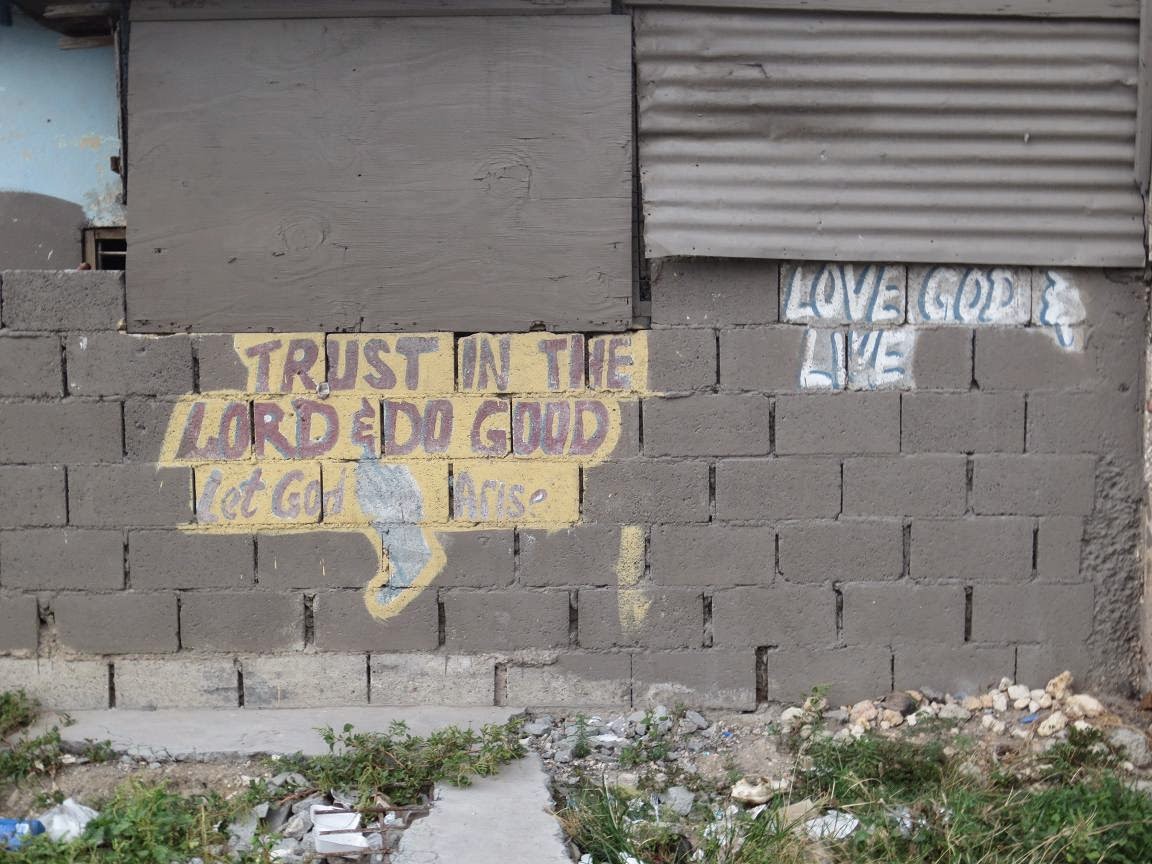 LOVE GOD &
LIVE
TRUST IN THE
LORD & DO GOOD
Let God Arise